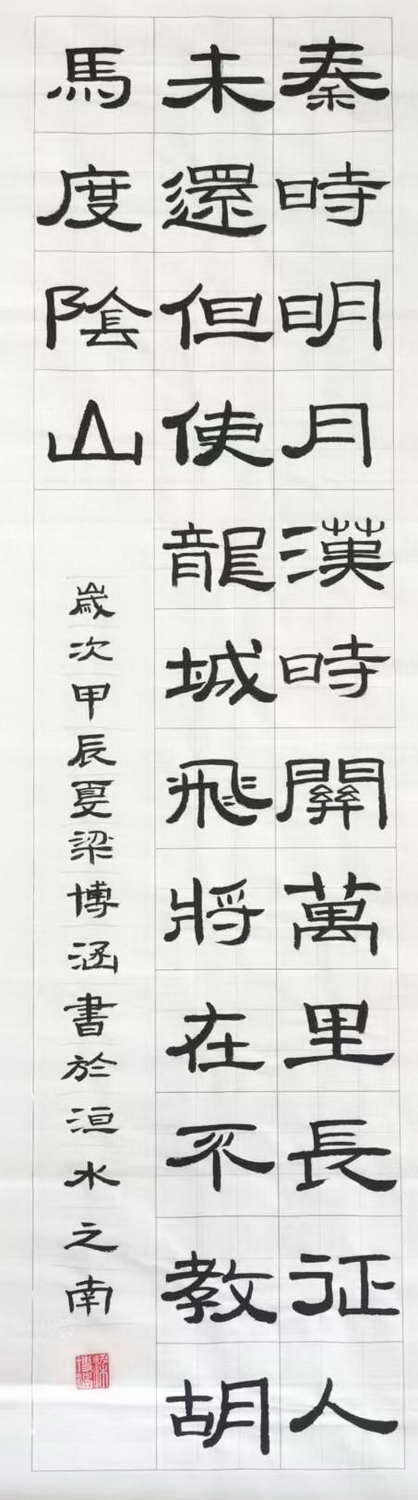 秦時明月漢時關萬里長征人
未還但使龍城飛將在不教胡
馬度陰山
歲次甲辰夏梁博涵書於洹水之南